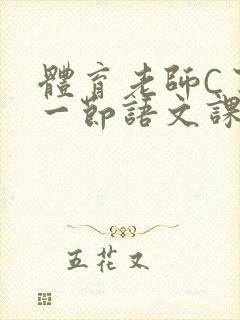 體育老師C
一節語文課
五花又